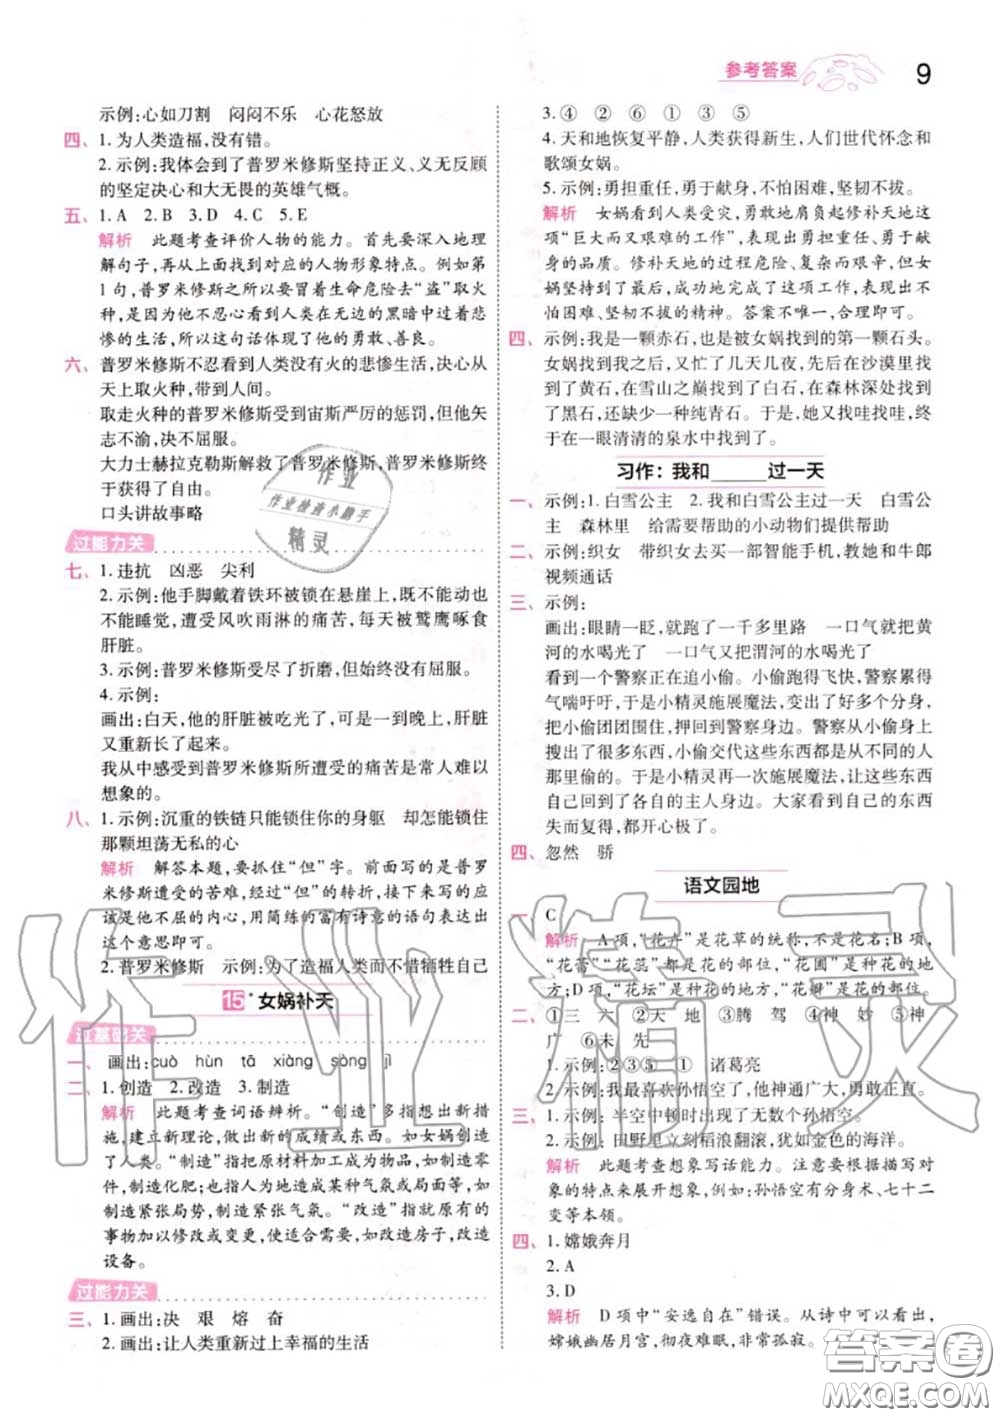 参考答案
9
示例:心如刀割 闷闷不乐 心花怒放
四、1. 为人类造福,没有错。
2. 示例:我体会到了普罗米修斯坚持正义、义无反顾
的坚定决心和大无畏的英雄气概。
五、1. A 2. B 3. D 4. C 5. E
解析 此题考查评价人物的能力。首先要深入地理
解句子,再从上面找到对应的人物形象特点。例如第
1句,普罗米修斯之所以要冒着生命危险去“盗”取火
种,是因为他不忍心看到人类在无边的黑暗中过着悲
惨的生活,所以这句话体现了他的勇敢、善良。
六、普罗米修斯不忍看到人类没有火的悲惨生活,决心从
天上取火种,带到人间。
取走火种的普罗米修斯受到宙斯严厉的惩罚,但他矢
志不渝,决不屈服。
大力士赫拉克勒斯解救了普罗米修斯,普罗米修斯终
于获得了自由。
口头讲故事略
过能力关
七、1. 违抗 凶恶 尖利
2. 示例:他手脚戴着铁环被锁在悬崖上,既不能动也
不能睡觉,遭受风吹雨淋的痛苦,每天被鹫鹰啄食
肝脏。
3. 示例:普罗米修斯受尽了折磨,但始终没有屈服。
4. 示例:
画出:白天,他的肝脏被吃光了,可是一到晚上,肝脏
又重新长了起来。
我从中感受到普罗米修斯所遭受的痛苦是常人难以
想象的。
八、1. 示例:沉重的铁链只能锁住你的身躯 却怎能锁住
那颗坦荡无私的心
解析 解答本题,要抓住“但”字。前面写的是普罗
米修斯遭受的苦难,经过“但”的转折,接下来写的应
该是他不屈的内心,用简练的富有诗意的语句表达出
这个意思即可。
2. 普罗米修斯 示例:为了造福人类而不惜牺牲自己
15* 女娲补天
过基础关
一、画出:cuò hùn tā xiàng sòng jì
二、1. 创造 2. 改造 3. 制造
解析 此题考查词语辨析。“创造”多指想出新措
施,建立新理论,做出新的成绩或东西。如女娲创造
了人类。“制造”指把原材料加工成为物品,如制造零
件,制造化肥;也指造成某种气氛或局面等,如
制造紧张局势,制造紧张气氛。“改造”指就原有的
事物加以修改或变更,使适合需要,如改造房子,改造
设备。
过能力关
三、1. 画出:决 艰 熔 奋
2. 画出:让人类重新过上幸福的生活
3. ④ ② ⑥ ① ③ ⑤
4. 天和地恢复平静,人类获得新生,人们世代怀念和
歌颂女娲。
5. 示例:勇担重任,勇于献身,不怕困难,坚韧不拔。
解析 女娲看到人类受灾,勇敢地肩负起修补天地这
项“巨大而又艰难的工作”,表现出勇担重任、勇于献
身的品质。修补天地的过程危险、复杂而艰辛,但女
娲坚持到了最后,成功地完成了这项工作,表现出不
怕困难、坚韧不拔的精神。答案不唯一,合理即可。
四、示例:我是一颗赤石,也是被女娲找到的第一颗石头。
女娲找到我之后,又忙了几天几夜,先后在沙漠里找
到了黄石,在雪山之巅找到了白石,在森林深处找到
了黑石,还缺少一种纯青石。于是,她又找哇找哇,终
于在一眼清清的泉水中找到了。
习作：我和______过一天
一、示例:1. 白雪公主 2. 我和白雪公主过一天 白雪公
主 森林里 给需要帮助的小动物们提供帮助
二、示例:织女 带织女去买一部智能手机,教她和牛郎
视频通话
三、示例:
画出:眼睛一眨,就跑了一千多里路 一口气就把黄
河的水喝光了 一口气又把渭河的水喝光了
看到一个警察正在追小偷。小偷跑得飞快,警察累得
气喘吁吁,于是小精灵施展魔法,变出了好多个分身,
把小偷团团围住,押回到警察身边。警察从小偷身上
搜出了很多东西,小偷交代这些东西都是从不同的人
那里偷的。于是小精灵再一次施展魔法,让这些东西
自己回到了各自的主人身边。大家看到自己的东西
失而复得,都开心极了。
四、忽然 骄
语文园地
一、C
解析 A项,“花卉”是花草的统称,不是花名;B项,
“花蕾”“花蕊”都是花的部位,“花圃”是种花的地
方;D项,“花坛”是种花的地方,“花瓣”是花的部位。
二、①三 六 ②天 地 ③腾 驾 ④神 妙 ⑤神
广 ⑥未 先
1. 示例:②③⑤ ① 诸葛亮
2. 示例:我最喜欢孙悟空了,他神通广大,勇敢正直。
三、1. 示例:半空中顿时出现了无数个孙悟空。
2. 示例:田野里立刻稻浪翻滚,犹如金色的海洋。
解析 此题考查想象写话能力。要根据描写对
象的特点来展开想象,例如:孙悟空有分身术、七十二
变等本领。
四、1. 嫦娥奔月
2. A
3. D
解析 D项中“安逸自在”错误。从诗中可以看出,
嫦娥幽居月宫,彻夜难眠,非常孤寂。
作业
作业快速小助手
精灵
作业精灵
答案圈
MXQE.COM